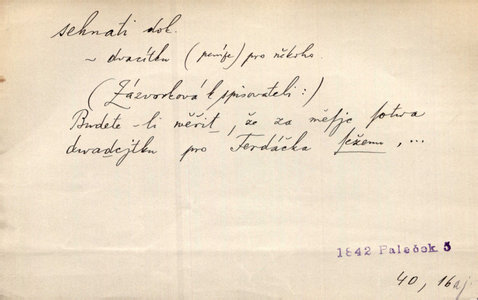 sehnati dok.
~ dvacítku (peníze) pro někoho
(Zázvorková k spisovateli:)
Budete-li měřit, že za měsjc sotva
dwadcjtku pro Ferdáčka seženu, ...
1842 Paleček 5
40, 16aj